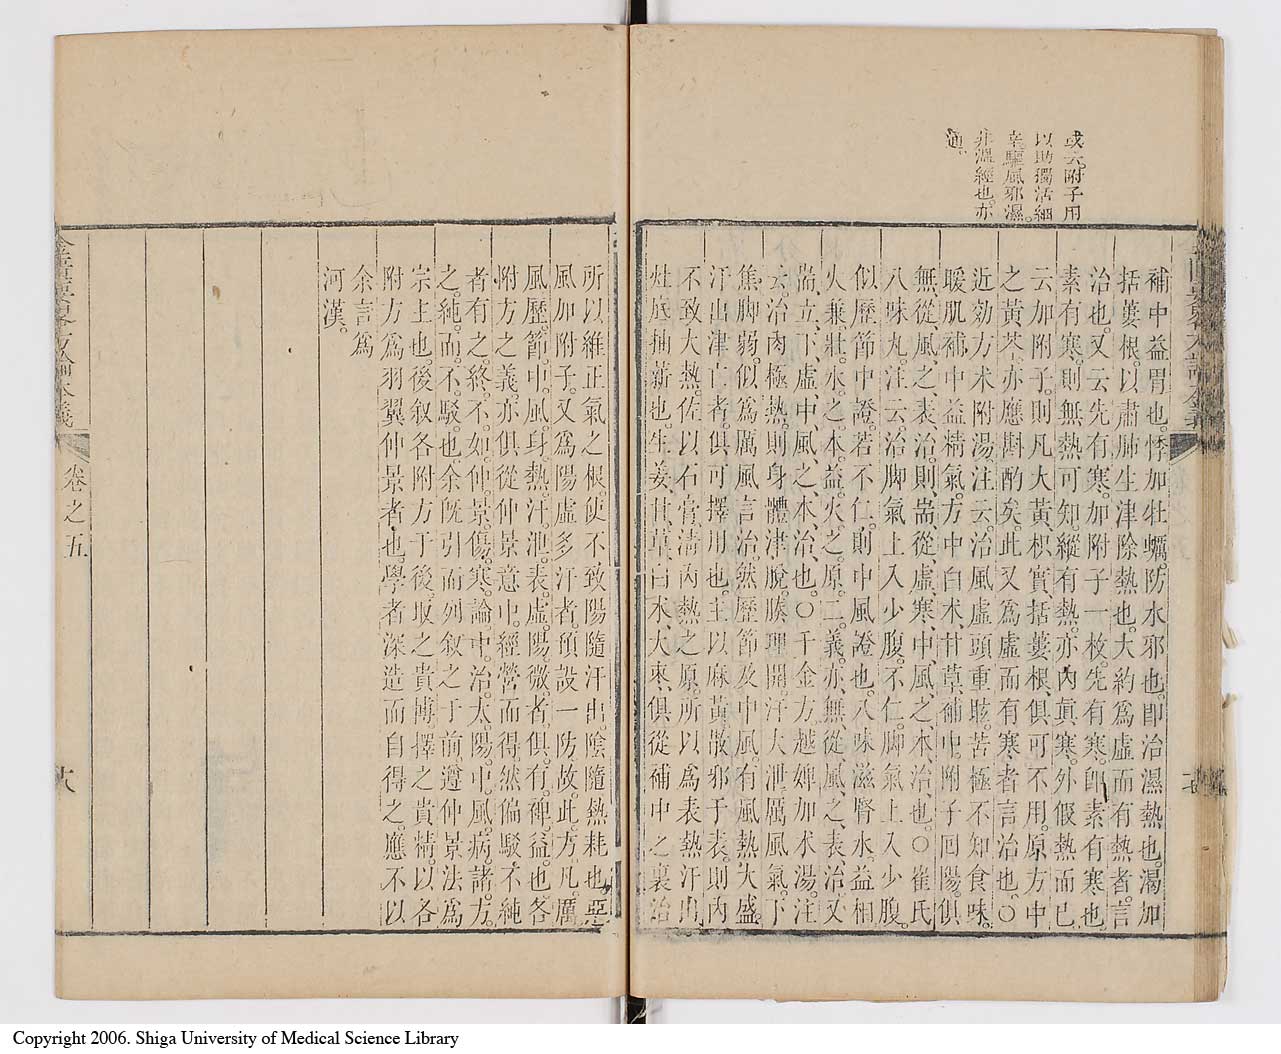 或云附子用
以助獨活細
辛驅風邪濕
非溫經也亦
通
補中益胃也。悸加牡蠣。防水邪也。卽治濕熱也。渴加
括蔞根。以肅肺生津除熱也。大約爲虛而有熱者。言
治也。又云先有寒。加附子一枚。先有寒。卽素有寒也
素有寒。則無熱可知。縱有熱。亦內眞寒。外假熱而已
云加附子。則凡大黃枳實括蔞根。俱可不用。原方中
之黃芪。亦應斟酌矣。此又爲虛而有寒者言治也。○
近効方术附湯。注云。治風虛頭重眩。苦極不知食味。
暖肌補中益精氣。方中白术、甘草、補中。附子回陽。俱
無從風之表治。則耑從虛寒中風之本治也。○崔氏
八味丸。注云治脚氣上入少腹。不仁。脚氣上入少腹。
似歷節中證。若不仁。則中風證也。八味滋腎水。益相
火。兼壯水之本。益火之原。二義。亦無從風之表治。又
耑立下虛中風之本治也。○千金方越婢加术湯。注
云。治肉極熱。則身體津脫。腠理開。汗大泄厲風氣。下
焦脚弱。似爲厲風言治。然歷節及中風。有風熱大盛。
汗出津亡者。俱可擇用也。主以麻黃。散邪于表。則內
不致大熱。佐以石膏。淸內熱之原。所以爲表熱汗出
灶底抽薪也。生姜、甘草、白术、大棗、俱從補中之裏治
所以維正氣之根。使不致陽隨汗出。陰隨熱耗也。惡
風加附子。又爲陽虛多汗者。預設一防。故此方。凡厲
風歷節中風。身熱汗泄。表虛陽微者。俱有裨益也。各
附方之義。亦俱從仲景意中經營而得。然偏駁不純
者有之。終不如仲景傷寒論中。治太陽中風病諸方。
之純而不駁也。余旣引而列叙之于前。遵仲景法爲
宗主也。後叙各附方于後。取之貴博。擇之貴精。以各
附方爲羽翼仲景者也。學者深造而自得之。應不以
余言爲
河漢。
卷之五